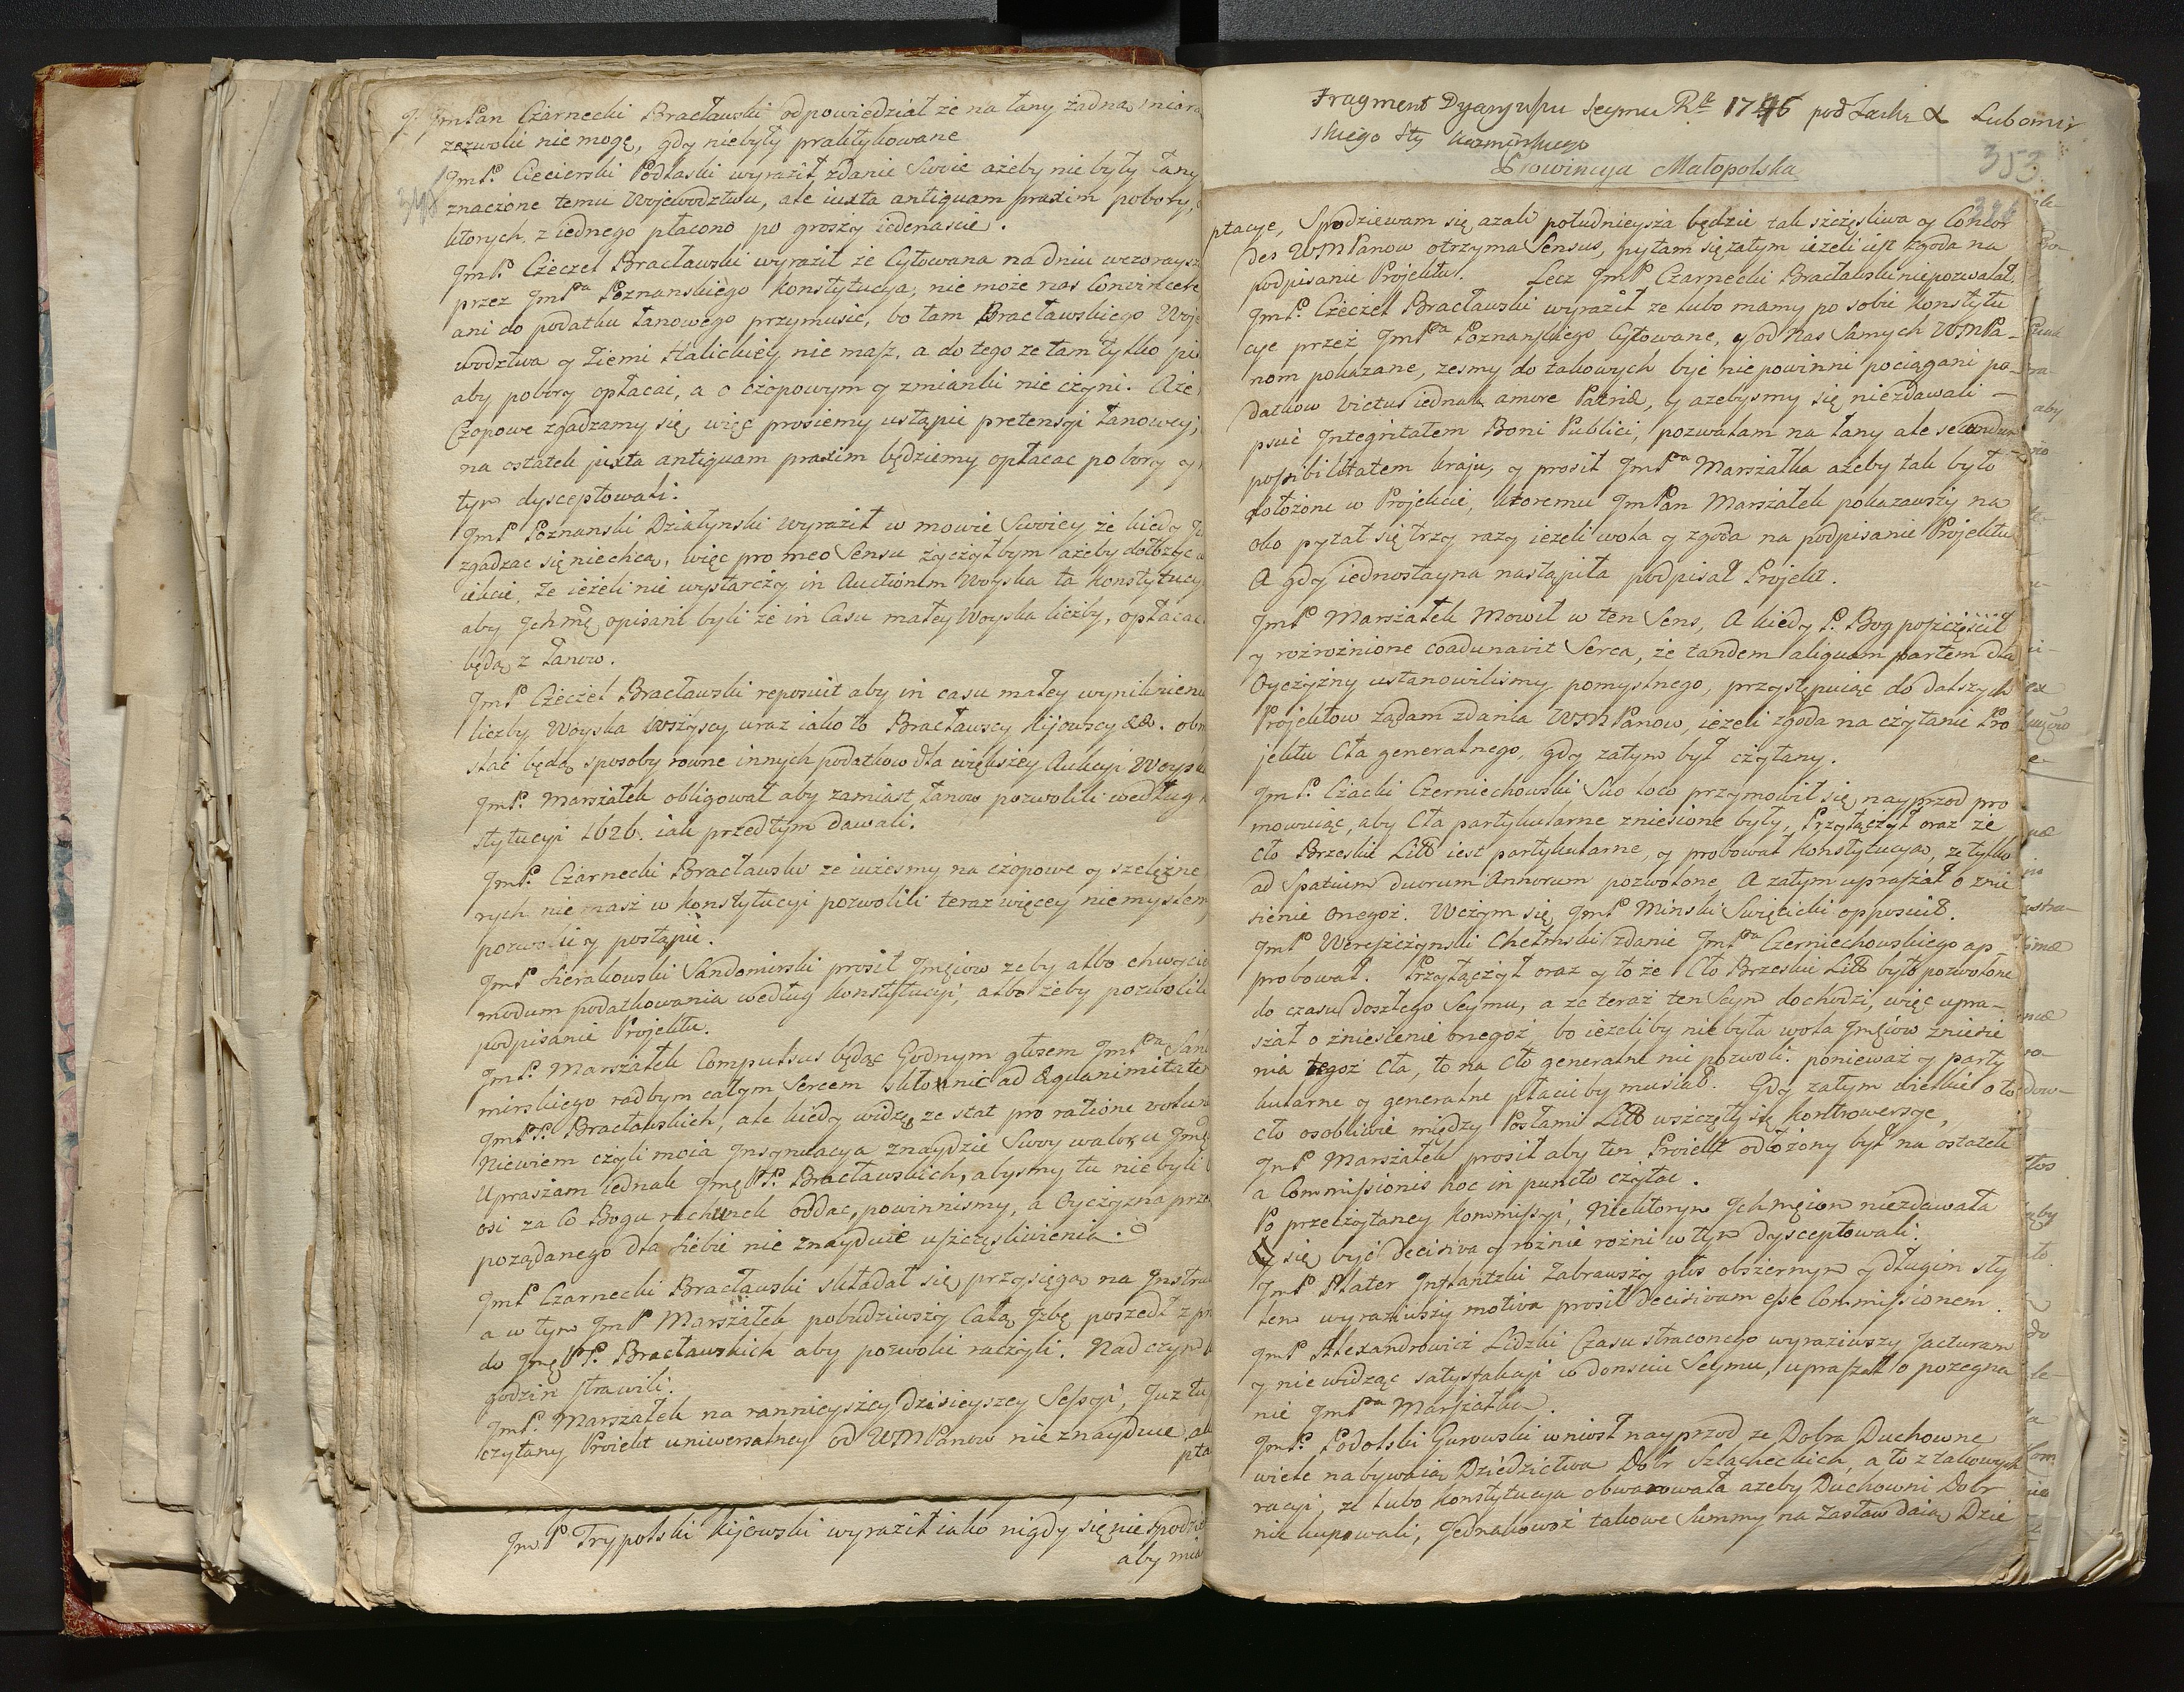 JmPan Czarnecki Bracławski odpowiedział że na łany żadną
zezwolić nie mogę, gdy niebyły praktykowane
JmP. Ciecierski Podlaski wyraził zdanie Swoie ażeby nie były łany
znaczone temu Woiewodztwu, ale iuxta antiquam praxim pobory,
ktorych z iednego płacono po groszy iedenaście.
JmP. Czeczel Bracławski wyraził że Cytowana na dniu wczoraysz
przez JmPa Poznanskiego Konstytucya, nie może nas Convincere
ani do podatku łanowego przymusić, bo tam Bracławskiego Woje
wodztwa y Ziemi Halickiey nie masz, a do tego ze tam tylko
aby pobory opłacać, a o czopowym y zmianki nie czyni. Aże
Czopowe zgadzamy się, więc prosiemy ustąpić pretensyi łanowey,
na ostatek juxta antiquam praxim będziemy opłacac pobory y
tym dysceptowali.
JmP Poznanski Działynski wyraził w mowie Swoiey że kiedy
zgadzac się niechcą, więc pro meo Sensu życzyłbym ażeby dołożyc
iekcie, że ieżeli nie wystarczy in Auctionem Woyska ta Konstytucy
aby Ichmę opisani byli że in Casu małey Woyska liczby, opłacac
będą z Łanow.
JmP Czeczel Bracławski reposuit aby in casu małey wyniknienia
liczby Woyska Wszyscy uraz iako to Bracławscy Kijowscy &&.
stać będą sposoby rowne innych podatkow dla większey Aukcyi Woyska
JmP. Marszałek obligował aby zamiast łanow pozwolili według
stytucyi 1626. iak przedtym dawali.
JmP. Czarnecki Bracławski ze iużesmy na czopowe y szelężne
rych nie masz w Konstytucyi pozwolili teraz więcey niemyslem
pozwolić y postąpić.
JmP Sierakowski Sandomirski prosił Jmęiow zeby albo chwycili
modum podatkowania według Konstytucyi, albo żeby pozwolili
podpisanie Projektu.
JmP. Marszałek Compulsus będąc Godnym głosem JmPa Sand
mirskiego radbym całym Sercem skłonić ad AEquanimitatem
JmPP. Bracławskich, ale kiedy widzę ze stat pro ratione voluntas
Niewiem czyli moia Insynuacya znaydzie Swoy walor u Jmę
Upraszam iednak Jmę PP. Bracławskich, abysmy tu nie byli
osi za Co Bogu rachunek oddac, powinnismy, a Oyczyzna prze
pożądanego dla Siebie nie znayduie uszczęsliwienia.
JmP Czarnecki Bracławski składał się przysięgą na Instruk
a w tym JmP Marszałek pobudziwszy Całą Izbę poszedł z
do Jmę PP. Bracławskich aby pozwolić raczyli. Nad czym
godzin strawili.
JmP. Marszałek na rannieyszey dzisieyszey Sessyi, Juz tu
czytany Proiekt uniwersalney od WMPanow nie znayduie
pta
JmP Trypolski Kijowski wyraził iako nigdy się nie spodzie
aby mia
Fragment Dyaryuszu Seymu Rk 1746 pod Laską X Lubomir
skiego Sty Kazmirskiego
Prowincya Małopolska
353
ptacye, Spodziewam się azali południeysza będzie tak szczęsliwa y Concor
des WMPanow otrzyma Sensus, pytam się zatym ieżeli iest zgoda na
podpisanie Projektu. Lecz JmP Czarnecki Bracławski niepozwalał.
JmP. Czeczel Bracławski wyraził ze lubo mamy po sobie Konstytu
cye przez JmPa Poznanskiego Cytowane, y od nas Samych WMPa-
nom pokazane, zesmy do takowych być nie powinni pociągani po-
datkow Victus iednak amore Patriæ, y azebysmy się niezdawali
psuć Integritatem Boni Publici, pozwalam na łany ale secundum
possibilitatem kraju, y prosił JmPa Marszałka ażeby tak było
położone w Projekcie, ktoremu JmPan Marszałek pokazawszy na
oko pytał się trzy razy ieżeli wola y zgoda na podpisanie Projektu
A gdy iednostayna nastąpiła podpisał Projekt.
JmP Marszałek Mowił w ten Sens, A kiedy P. Bog poszczęscił
y rozrożnione coadunavit Serca, że tandem aliquam partem dla
Oyczyzny ustanowilismy pomyslnego, przystępuiąc do dalszych
Projektow żądam zdania WMPanow, ieżeli zgoda na czytanie Pro
jektu Cła generalnego, gdy zatym był czytany.
JmP. Czacki Czerniechowski Suo loco przymowił się nayprzod pro
mowuiąc, aby Cła partykularne zniesione były, Przyłączył oraz że
cło Brzeskie Litt iest partykularne, y probował Konstytucyą, ze tylko
ad Spatium duorum Annorum pozwolone, A zatym upraszał o znie
sienie onegoż. Wczym się JmP Minski Swięcicki opposuit.
JmP Wereszczynski Chełmski zdanie JmPa Czerniechowskiego ap
probował. Przyłączył oraz y to że Cło Brzeskie Litt było pozwolone
do czasu doszłego Seymu, a ze teraz ten Seym dochodzi, więc upra-
szał o zniesienie onegoż, bo ieżeliby nie była wola Jmęiow zniesie
nia tegoż Cła, to na Cło generalne nie pozwoli. ponieważ y party
kularne y generalne płacić by musiał. Gdy zatym wielkie o to
cło osobliwie między Posłami Litt wszczęły się kontrowersye,
JmP Marszałek prosił aby ten Proiekt odłożony był na ostatek
a Commissionis hoc in puncto czytac.
Po przeczytaney Kommissyi, Niektorym Ichmęiom niezdawała
się być decisiva y rożnie rożni w tym dysceptowali.
JmP Plater Inflantzki Zabrawszy głos obszernym y długim sty
lem wyraziwszy motiva prosił decisivam esse Commissionem.
JmP Alexandrowicz Lidzki Czasu straconego wyraziwszy jacturam
y nie widząc satysfakcyi w donsciu Seymu, upraszał o pozegna
nie JmPa Marszałka.
JmP. Podolski Gurowski wniosł nayprzod ze Dobra Duchowne
wiele nabywaią Dziedzictwa Dobr Szlacheckich, a to z takowych
racyi, ze lubo Konstytucya obwarowała azeby Duchowni Dobr
nie kupowali, Jednakowoż takowe Summy na Zastaw daią Dzie